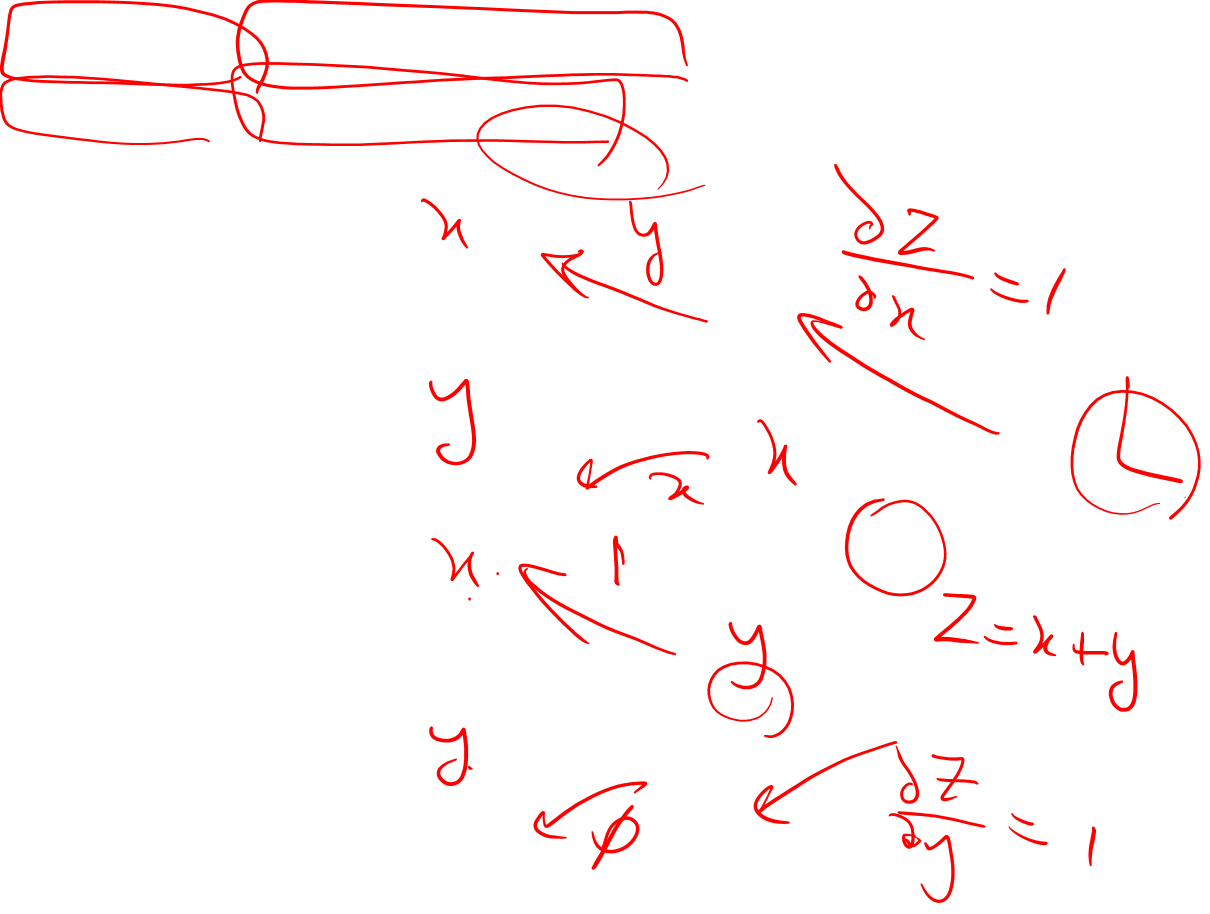 x y ∂z/∂x = 1
y
x x
x 1
z = x + y
y
y
∂z/∂y = 1
ϕ